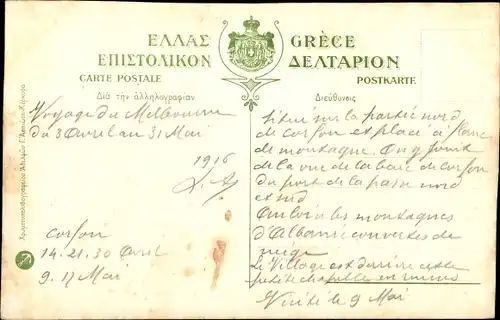 ΕΛΛΑΣ GRÈCE
ΕΠΙΣΤΟΛΙΚΟΝ ΔΕΛΤΑΡΙΟΝ
CARTE POSTALE POSTKARTE
Διὰ τὴν ἀλληλογραφίαν
Διεύθυνσις
Voyage du Melbourne
du 3 Avril au 31 Mai
1916
Corfou
14. 21. 30 Avril
9. 17 Mai
Situé sur la partie nord
de corfou et placé à flanc
de montagne. On y jouit
de la vue de la baie de corfou
du port de la passe nord
et sud
Au loin les montagnes
d'Albanie couvertes de
neige
Le Village est derrière cette
petite chapelle en ruines
Visité le 9 Mai